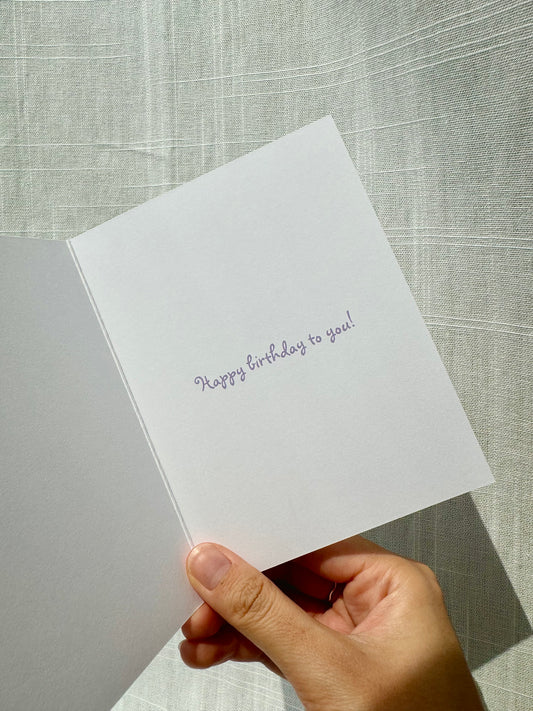 Happy birthday to you!